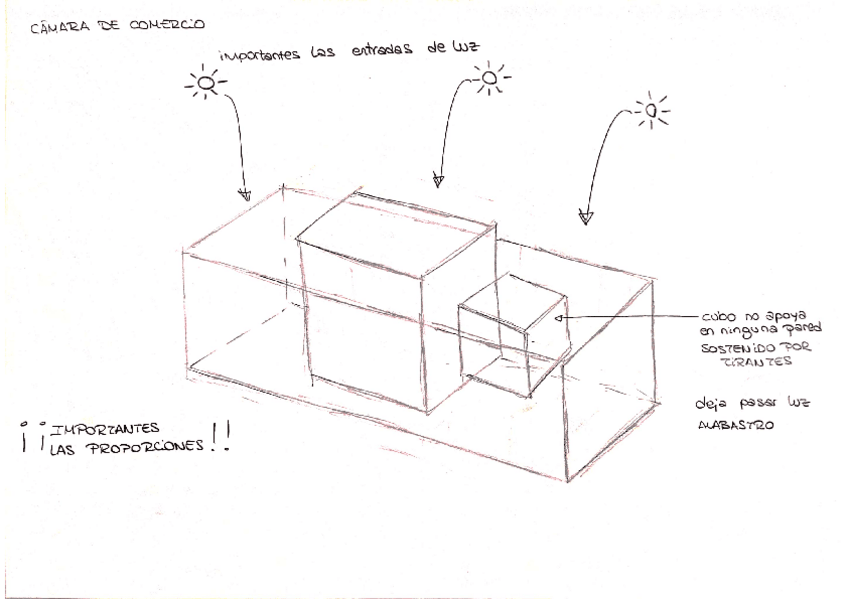 CÁMARA DE COMERCIO
importantes las entradas de luz
cubo no apoya
en ninguna pared
SOSTENIDO POR
TIRANTES
deja pasar luz
ALABASTRO
¡¡IMPORTANTES
LAS PROPORCIONES!!